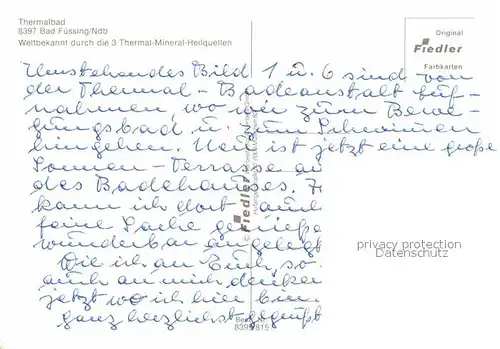 Thermalbad
8397 Bad Füssing/Ndb
Weltbekannt durch die 3 Thermal-Mineral-Heilquellen
Original
Fiedler
Farbkarten
Umstehendes Bild 1 u. 6 sind von
der Thermal-Badeanstalt Auf-
nahmen, wo wir zum Bewe-
gungsbad u. zum Schwimen
hingehen. Neu ist jetzt eine große
Sonnen-Terrasse au
des Badehauses.
kann ich dort auch
feine Sache genieße
wunderbar angelegt
Wie ich an Euch, so
auch an mich denken
jetzt wo ich hier bin
ganz herzlichst gegrüßt
Fiedler
Best.-Nr.
8399/815
privacy protection
Datenschutz